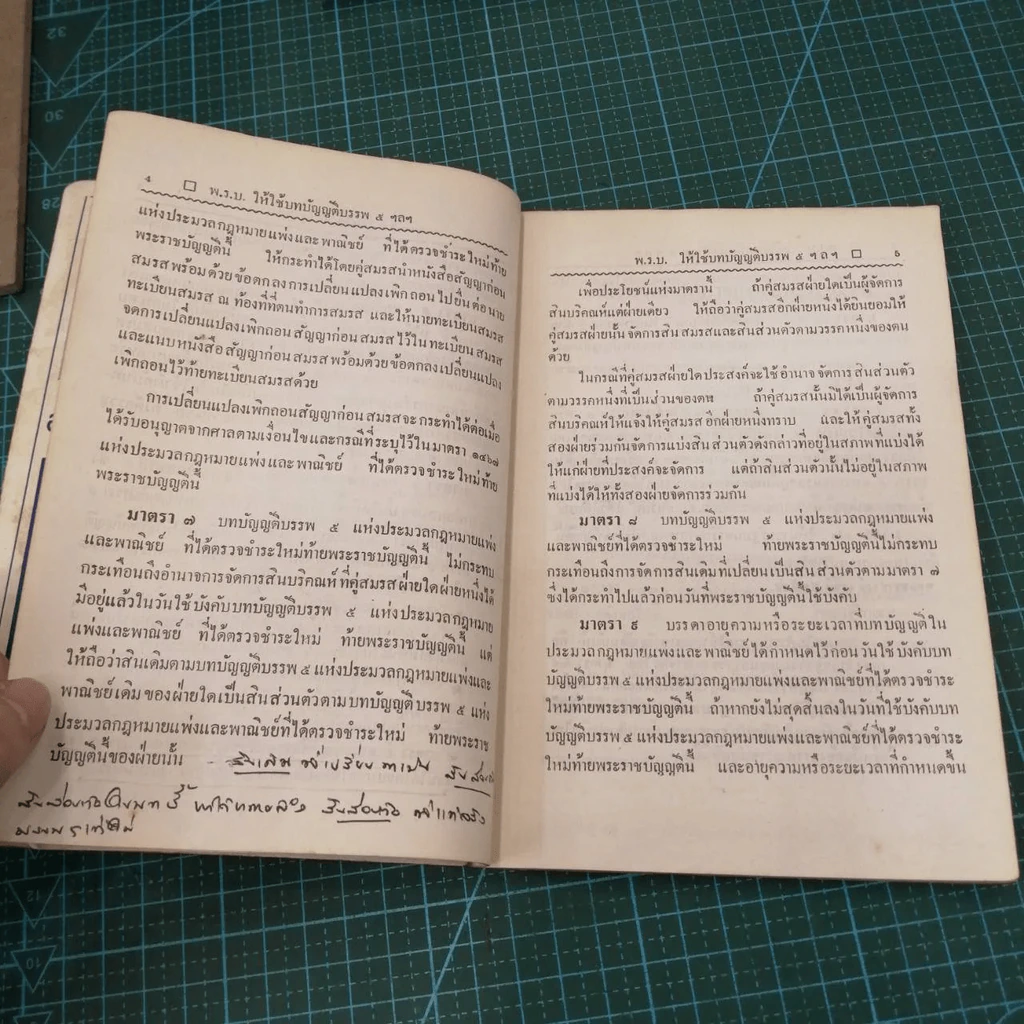 ๔ □ พ.ร.บ. ให้ใช้บทบัญญัติบรรพ ๕ ฯลฯ
แห่งประมวลกฎหมายแพ่งและพาณิชย์ ที่ได้ตรวจชำระใหม่ท้าย
พระราชบัญญัตินี้ ให้กระทำได้โดยคู่สมรสนำหนังสือสัญญาก่อน
สมรสพร้อมด้วยข้อตกลงการเปลี่ยนแปลงเพิกถอนไปยื่นต่อนาย
ทะเบียนสมรส ณ ท้องที่ที่ตนทำการสมรส และให้นายทะเบียนสมรส
จดการเปลี่ยนแปลงเพิกถอนสัญญาก่อนสมรสไว้ในทะเบียนสมรส
และแนบหนังสือสัญญาก่อนสมรสพร้อมด้วยข้อตกลงเปลี่ยนแปลง
เพิกถอนไว้ท้ายทะเบียนสมรสด้วย
การเปลี่ยนแปลงเพิกถอนสัญญาก่อนสมรสจะกระทำได้ต่อเมื่อ
ได้รับอนุญาตจากศาลตามเงื่อนไขและกรณีที่ระบุไว้ในมาตรา ๑๔๖๗
แห่งประมวลกฎหมายแพ่งและพาณิชย์ ที่ได้ตรวจชำระใหม่ท้าย
พระราชบัญญัตินี้
มาตรา ๗ บทบัญญัติบรรพ ๕ แห่งประมวลกฎหมายแพ่ง
และพาณิชย์ ที่ได้ตรวจชำระใหม่ท้ายพระราชบัญญัตินี้ ไม่กระทบ
กระเทือนถึงอำนาจการจัดการสินบริคณห์ที่คู่สมรสฝ่ายใดฝ่ายหนึ่งได้
มีอยู่แล้วในวันใช้บังคับบทบัญญัติบรรพ ๕ แห่งประมวลกฎหมาย
แพ่งและพาณิชย์ ที่ได้ตรวจชำระใหม่ ท้ายพระราชบัญญัตินี้ แต่
ให้ถือว่าสินเดิมตามบทบัญญัติบรรพ ๕ แห่งประมวลกฎหมายแพ่งและ
พาณิชย์เดิมของฝ่ายใดเป็นสินส่วนตัวตามบทบัญญัติบรรพ ๕ แห่ง
ประมวลกฎหมายแพ่งและพาณิชย์ที่ได้ตรวจชำระใหม่ ท้ายพระราช
บัญญัตินี้ของฝ่ายนั้น - สินเดิม
พ.ร.บ. ให้ใช้บทบัญญัติบรรพ ๕ ฯลฯ □ ๕
เพื่อประโยชน์แห่งมาตรานี้ ถ้าคู่สมรสฝ่ายใดเป็นผู้จัดการ
สินบริคณห์แต่ฝ่ายเดียว ให้ถือว่าคู่สมรสอีกฝ่ายหนึ่งได้ยินยอมให้
คู่สมรสฝ่ายนั้นจัดการสินสมรสและสินส่วนตัวตามวรรคหนึ่งของตน
ด้วย
ในกรณีที่คู่สมรสฝ่ายใดประสงค์จะใช้อำนาจจัดการสินส่วนตัว
ตามวรรคหนึ่งที่เป็นส่วนของตน ถ้าคู่สมรสนั้นมิได้เป็นผู้จัดการ
สินบริคณห์ให้แจ้งให้คู่สมรสอีกฝ่ายหนึ่งทราบ และให้คู่สมรสทั้ง
สองฝ่ายร่วมกันจัดการแบ่งสินส่วนตัวดังกล่าวที่อยู่ในสภาพที่แบ่งได้
ให้แก่ฝ่ายที่ประสงค์จะจัดการ แต่ถ้าสินส่วนตัวนั้นไม่อยู่ในสภาพ
ที่แบ่งได้ให้ทั้งสองฝ่ายจัดการร่วมกัน
มาตรา ๘ บทบัญญัติบรรพ ๕ แห่งประมวลกฎหมายแพ่ง
และพาณิชย์ที่ได้ตรวจชำระใหม่ ท้ายพระราชบัญญัตินี้ไม่กระทบ
กระเทือนถึงการจัดการสินเดิมที่เปลี่ยนเป็นสินส่วนตัวตามมาตรา ๗
ซึ่งได้กระทำไปแล้วก่อนวันที่พระราชบัญญัตินี้ใช้บังคับ
มาตรา ๙ บรรดาอายุความหรือระยะเวลาที่บทบัญญัติใน
ประมวลกฎหมายแพ่งและพาณิชย์ได้กำหนดไว้ก่อนวันใช้บังคับบท
บัญญัติบรรพ ๕ แห่งประมวลกฎหมายแพ่งและพาณิชย์ที่ได้ตรวจชำระ
ใหม่ท้ายพระราชบัญญัตินี้ ถ้าหากยังไม่สุดสิ้นลงในวันที่ใช้บังคับบท
บัญญัติบรรพ ๕ แห่งประมวลกฎหมายแพ่งและพาณิชย์ที่ได้ตรวจชำระ
ใหม่ท้ายพระราชบัญญัตินี้ และอายุความหรือระยะเวลาที่กำหนดขึ้น
32
30
28
12
10